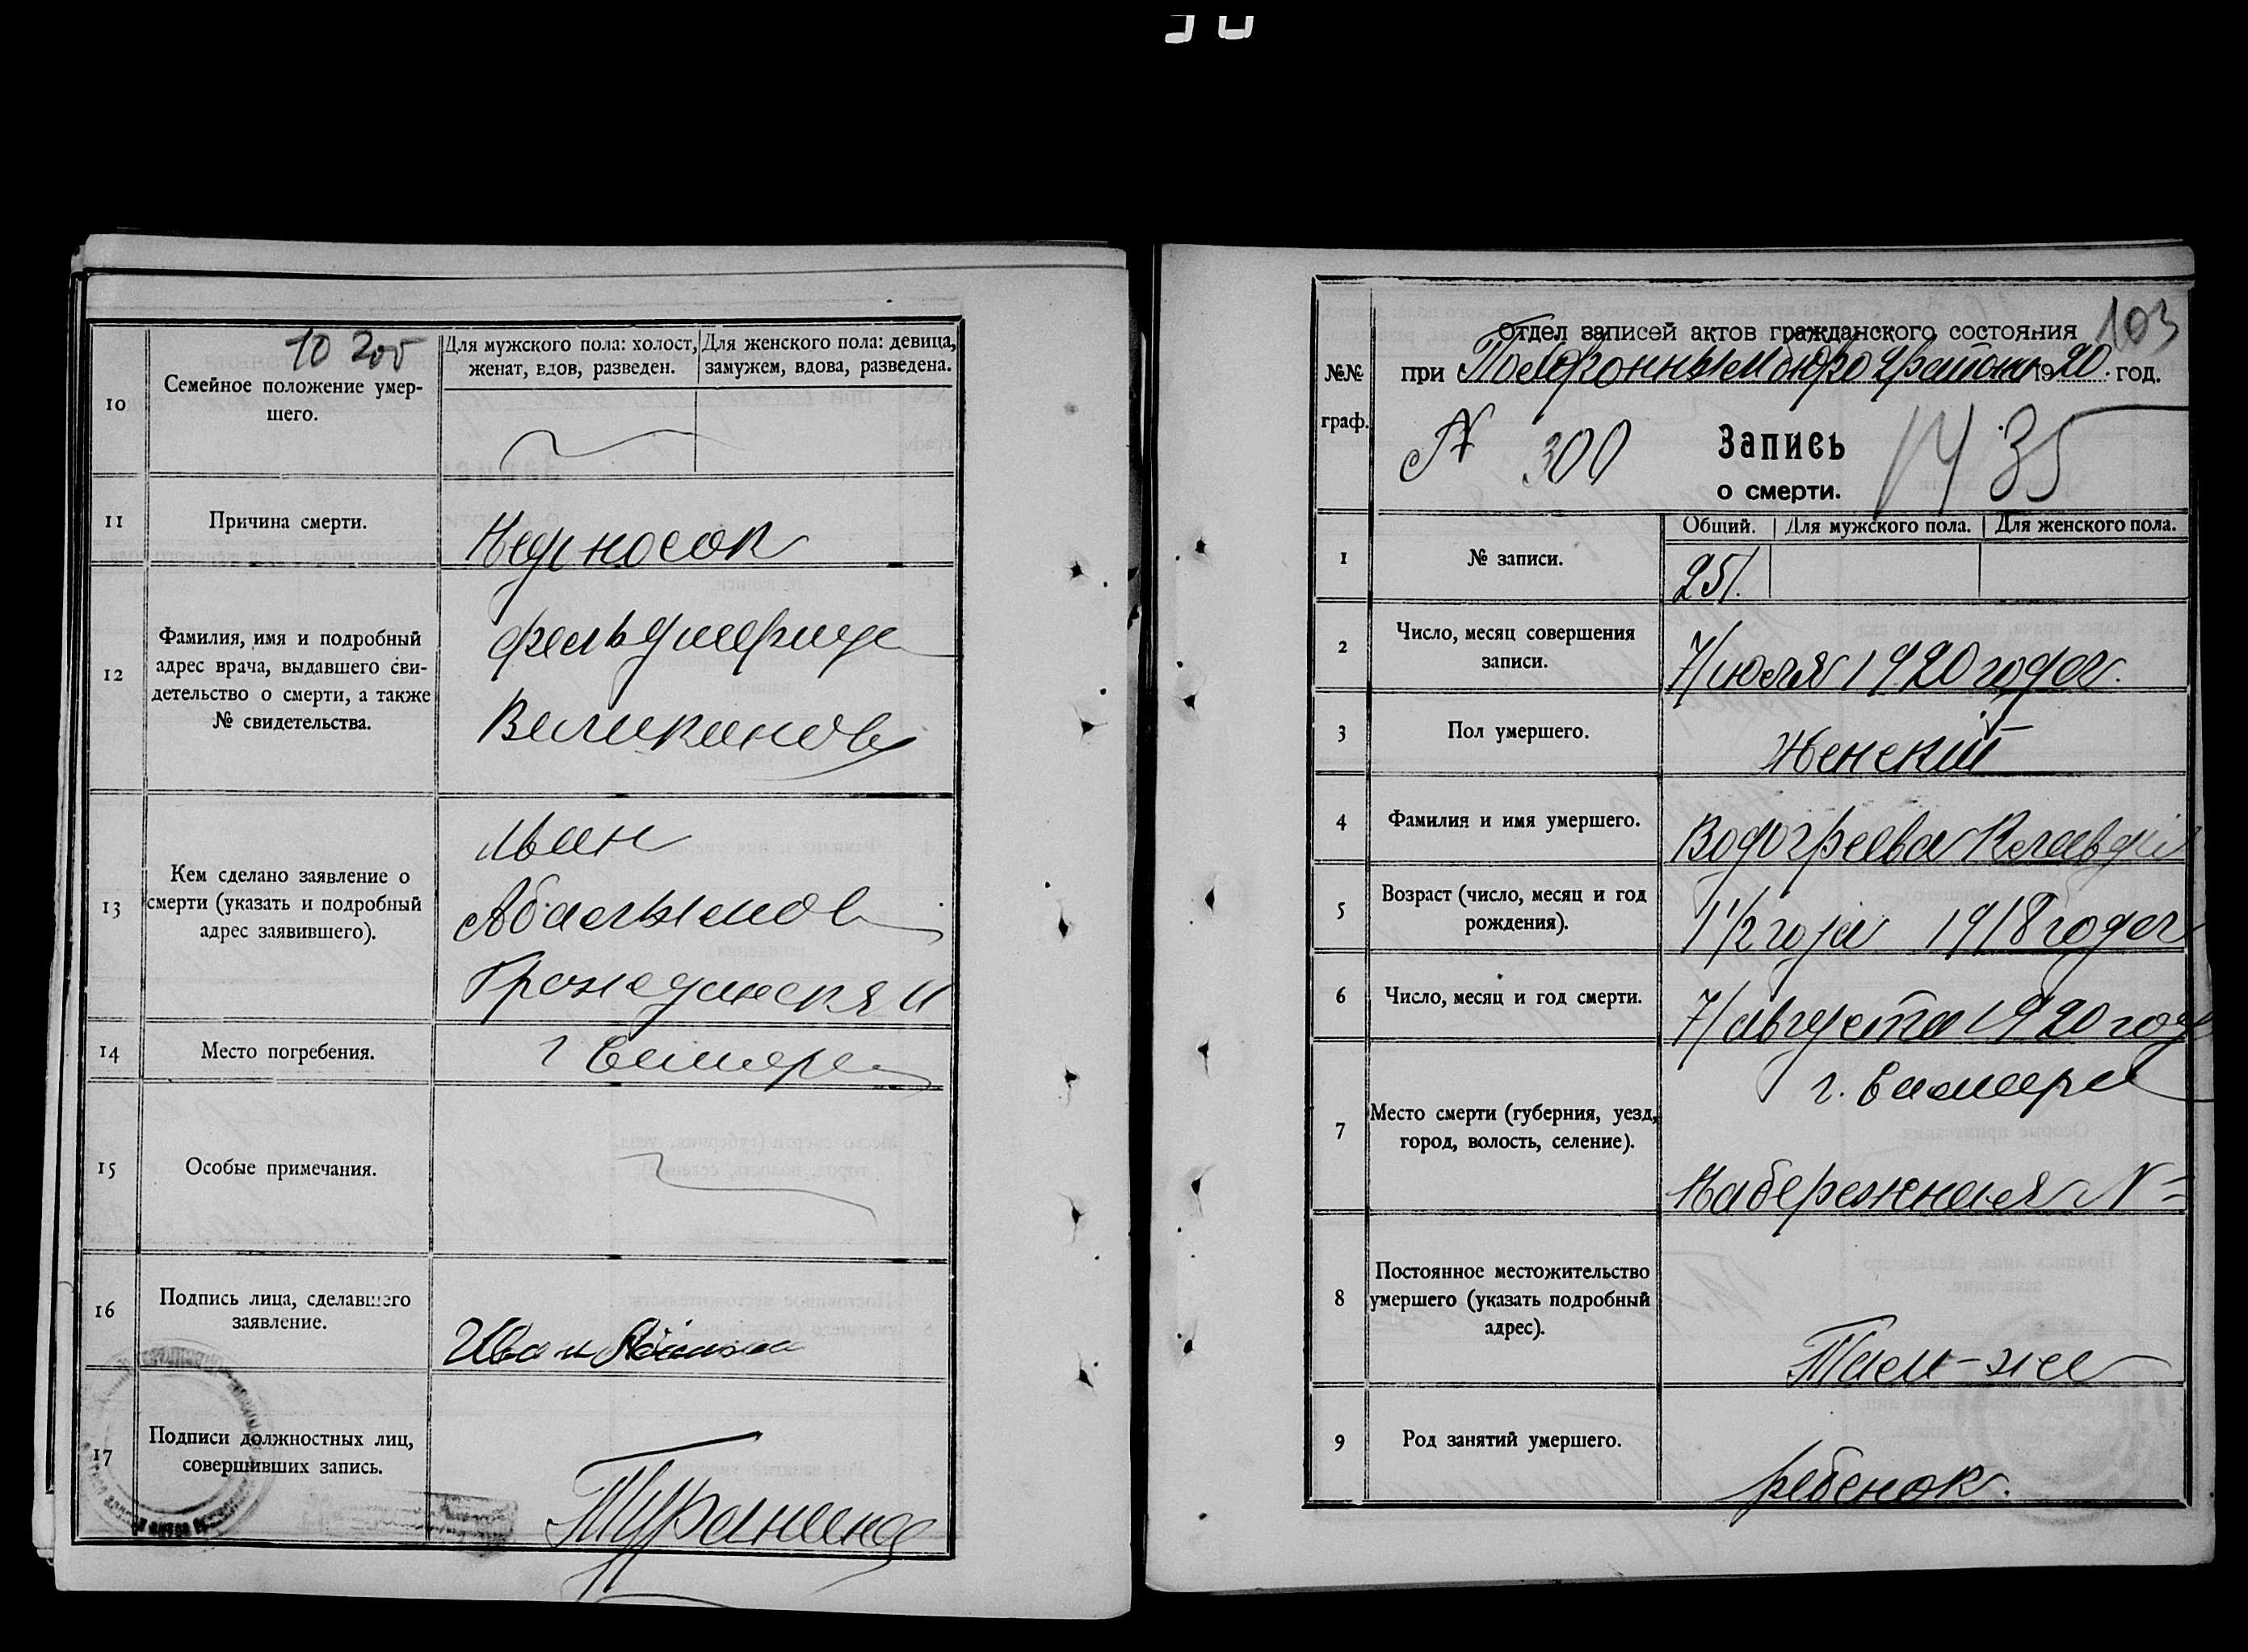 10 200
10
Семейное положение умер-
шего.
Для мужского пола: холост,
женат, вдов, разведен.
Для женского пола: девица,
замужем, вдова, разведена.
11
Причина смерти.
12
Фамилия, имя и подробный
адрес врача, выдавшего сви-
детельство о смерти, а также
№ свидетельства.
фельдшерица
Великанов
13
Кем сделано заявление о
смерти (указать и подробный
адрес заявившего).
Иван
Абалымов
14
Место погребения.
г Самара
15
Особые примечания.
16
Подпись лица, сделавшего
заявление.
Иван
17
Подписи должностных лиц,
совершивших запись.
103
Отдел записей актов гражданского состояния
№№
граф.
при Похоронным бюро 2 района 1920 год.
N 300
Запись
о смерти.
1435
1
№ записи.
Общий.
Для мужского пола.
Для женского пола.
251.
2
Число, месяц совершения
записи.
7/июля 1920 года.
3
Пол умершего.
Женский
4
Фамилия и имя умершего.
Водогреева Клавдия
5
Возраст (число, месяц и год
рождения).
1 1/2 года 1918 года
6
Число, месяц и год смерти.
7/августа 1920 год
7
Место смерти (губерния, уезд,
город, волость, селение).
г. Самара
Набережная N=
8
Постоянное местожительство
умершего (указать подробный
адрес).
Там-же
9
Род занятий умершего.
ребенок.